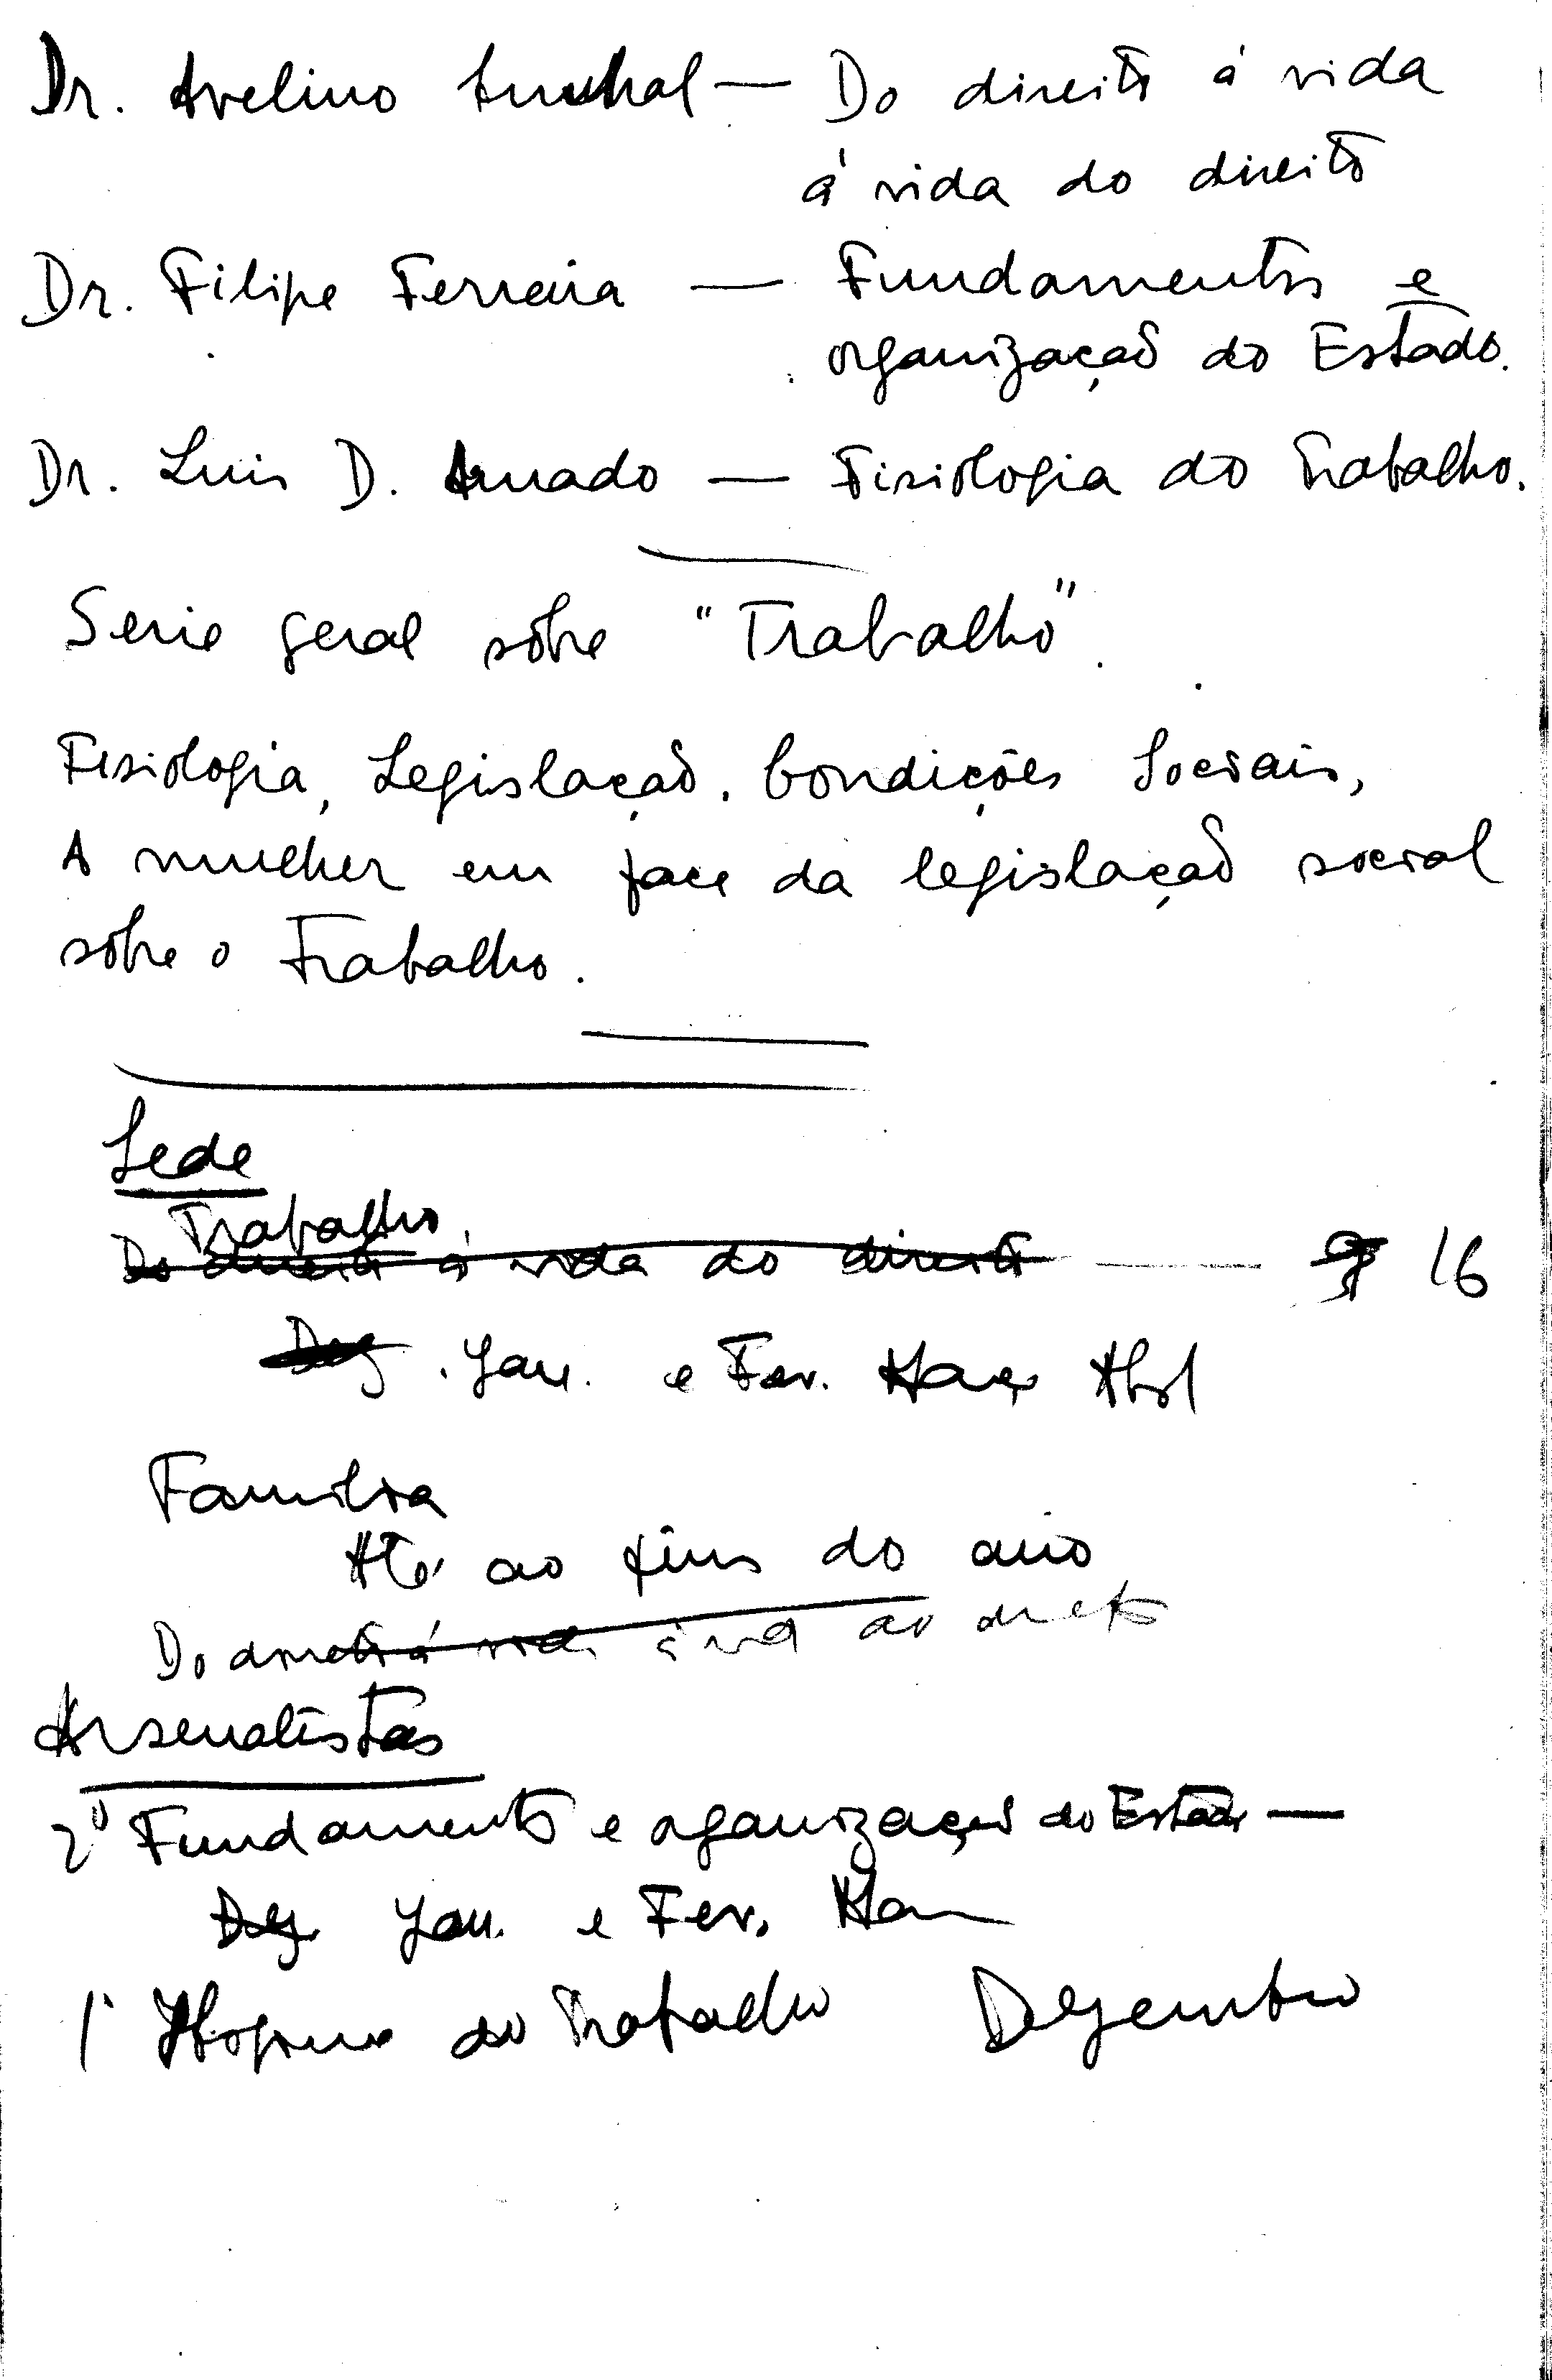 Dr. Avelino Cunhal — Do direito á vida
á vida do direito
Dr. Filipe Ferreira — Fundamentos e
organização do Estado.
Dr. Luis D. Amado — Fisiologia do Trabalho.
Serie geral sôbre "Trabalho".
Fisiologia, Legislação, Condições Sociais,
A mulher em face da legislação social
sôbre o Trabalho.
Sede
Trabalho
Do direito á vida do direito — 16
Dez. Jan. e Fev. Março Abril
Familia
Até ao fins do ano
Do direito á vida á vida do direito
Arsenalistas
2º Fundamentos e organização do Estado —
Dez. Jan. e Fev. Mar
1º do Trabalho Dezembro